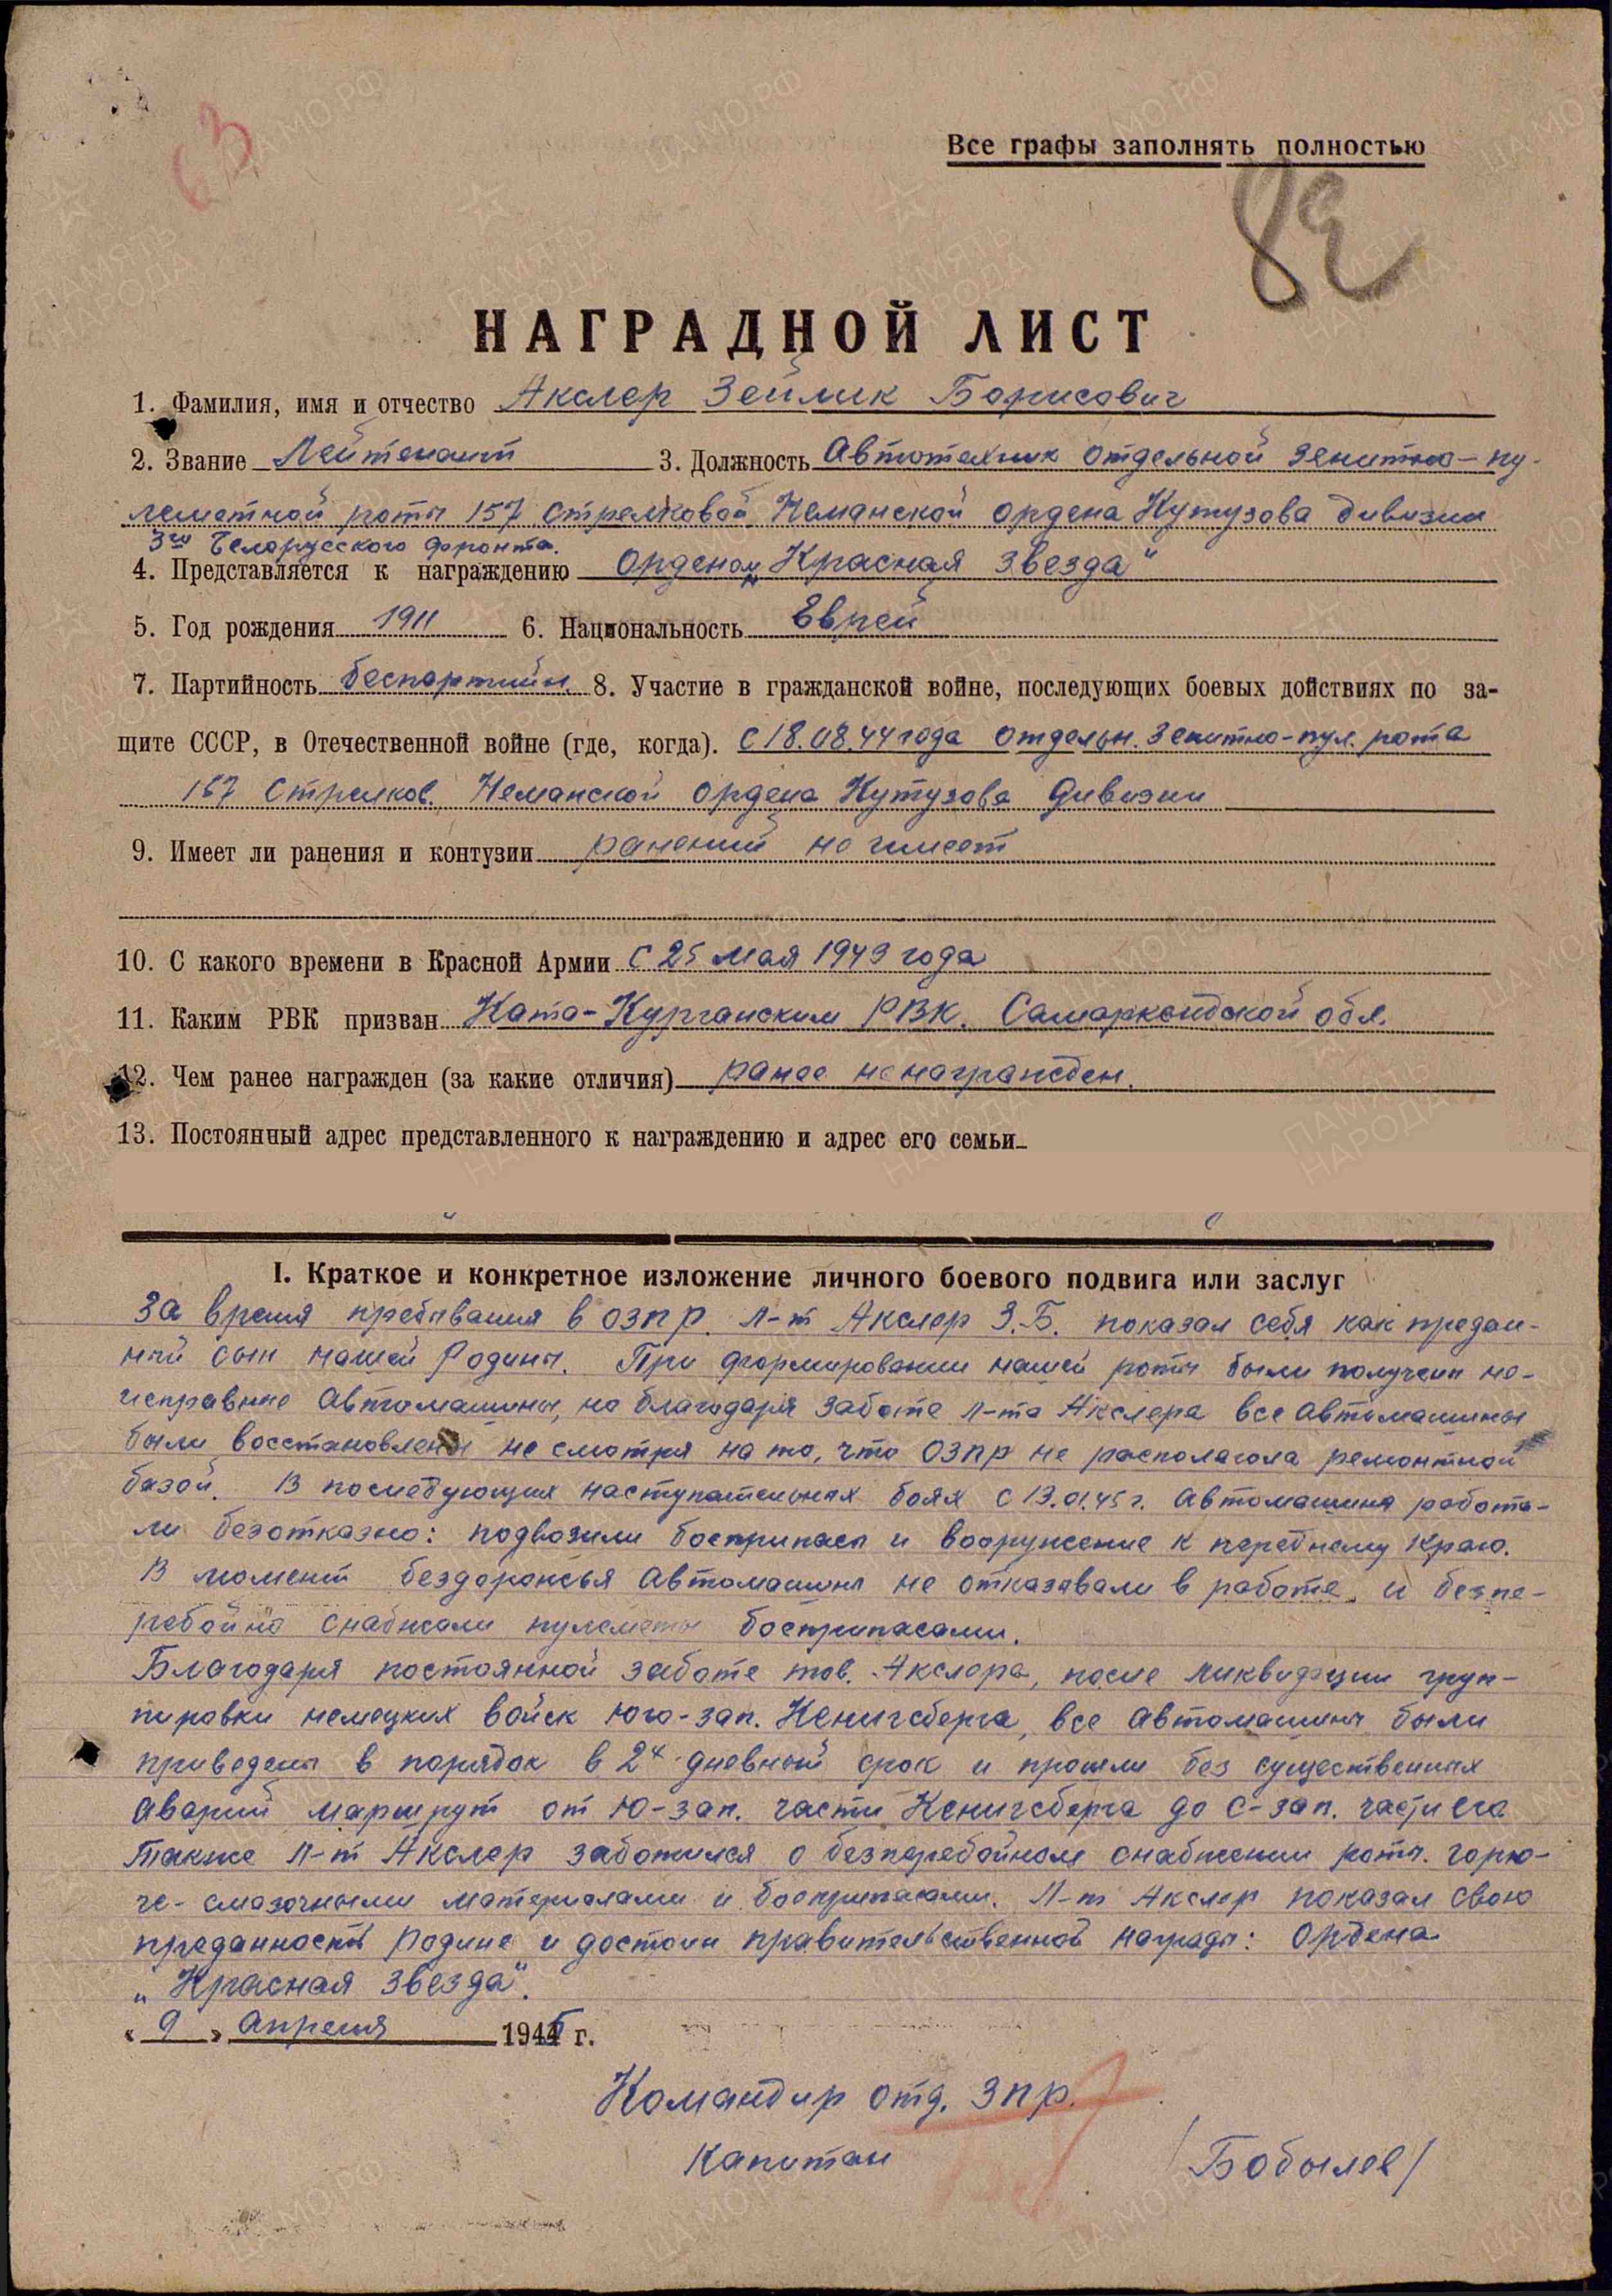 63
Все графы заполнять полностью
82
НАГРАДНОЙ ЛИСТ
1. Фамилия, имя и отчество Акслер Зейлик Борисович
2. Звание Лейтенант 3. Должность Автотехник отдельной зенитно-пу-
леметной роты 157 стрелковой Неманской ордена Кутузова дивизии
3го Белорусского фронта.
4. Представляется к награждению Орденом „Красная звезда"
5. Год рождения 1911 6. Национальность Еврей
7. Партийность беспартийн. 8. Участие в гражданской войне, последующих боевых действиях по за-
щите СССР, в Отечественной войне (где, когда). С 18.08.44 года отдельн. зенитно-пул. рота
157 Стрелков. Неманской ордена Кутузова дивизии
9. Имеет ли ранения и контузии ранений не имеет
10. С какого времени в Красной Армии с 25 мая 1943 года
11. Каким РВК призван Ката-Курганским РВК. Самаркандской обл.
12. Чем ранее награжден (за какие отличия) ранее не награжден.
13. Постоянный адрес представленного к награждению и адрес его семьи
I. Краткое и конкретное изложение личного боевого подвига или заслуг
За время пребывания в ОЗПР. л-т Акслер З.Б. показал себя как предан-
ный сын нашей Родины. При формировании нашей роты были получены не-
исправные автомашины, но благодаря заботе л-та Акслера все автомашины
были восстановлены не смотря на то, что ОЗПР не располагала ремонтной
базой. В последующих наступательных боях с 13.01.45 г. автомашины работа-
ли безотказно: подвозили боеприпасы и вооружение к переднему краю.
В момент бездорожья автомашины не отказывали в работе и безпе-
ребойно снабжали пулеметы боеприпасами.
Благодаря постоянной заботе тов. Акслера, после ликвидации груп-
пировки немецких войск юго-зап. Кенигсберга, все автомашины были
приведены в порядок в 2х дневный срок и прошли без существенных
аварий маршрут от Ю-зап. части Кенигсберга до С-зап. части его
Также л-т Акслер заботился о безперебойном снабжении роты горю-
че-смазочными материалами и боеприпасами. Л-т Акслер показал свою
преданность Родине и достоин правительственной награды: Ордена
„Красная звезда".
« 9 » апреля 1945 г.
Командир отд. ЗПР.
Капитан /Бобылев/